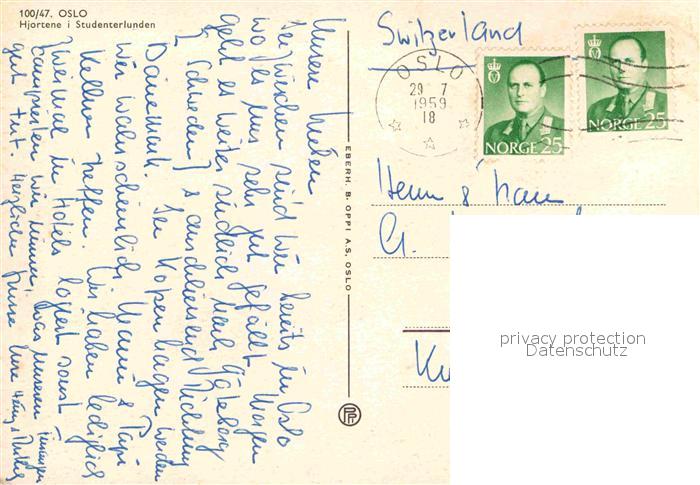 100/47. OSLO
Hjortene i Studenterlunden
Unsere Lieben
Inzwischen sind wir bereits in Oslo
wo es uns sehr gut gefällt. Morgen
geht es weiter südlich nach Göteborg
(Schweden) & anschliessend Richtung
Dänemark. In Kopenhagen werden
wir wahrscheinlich Mami & Papi
treffen. Wir haben lediglich
zweimal in Hotels logiert sonst
campierten wir immer, was unseren Finanzen
gut tut. Herzliche Grüsse Eure
EBERH. B. OPPI A.S. OSLO
Switzerland
OSLO
29 7
1959
18
NORGE 25
NORGE 25
Herrn & Frau
G.
privacy protection
Datenschutz